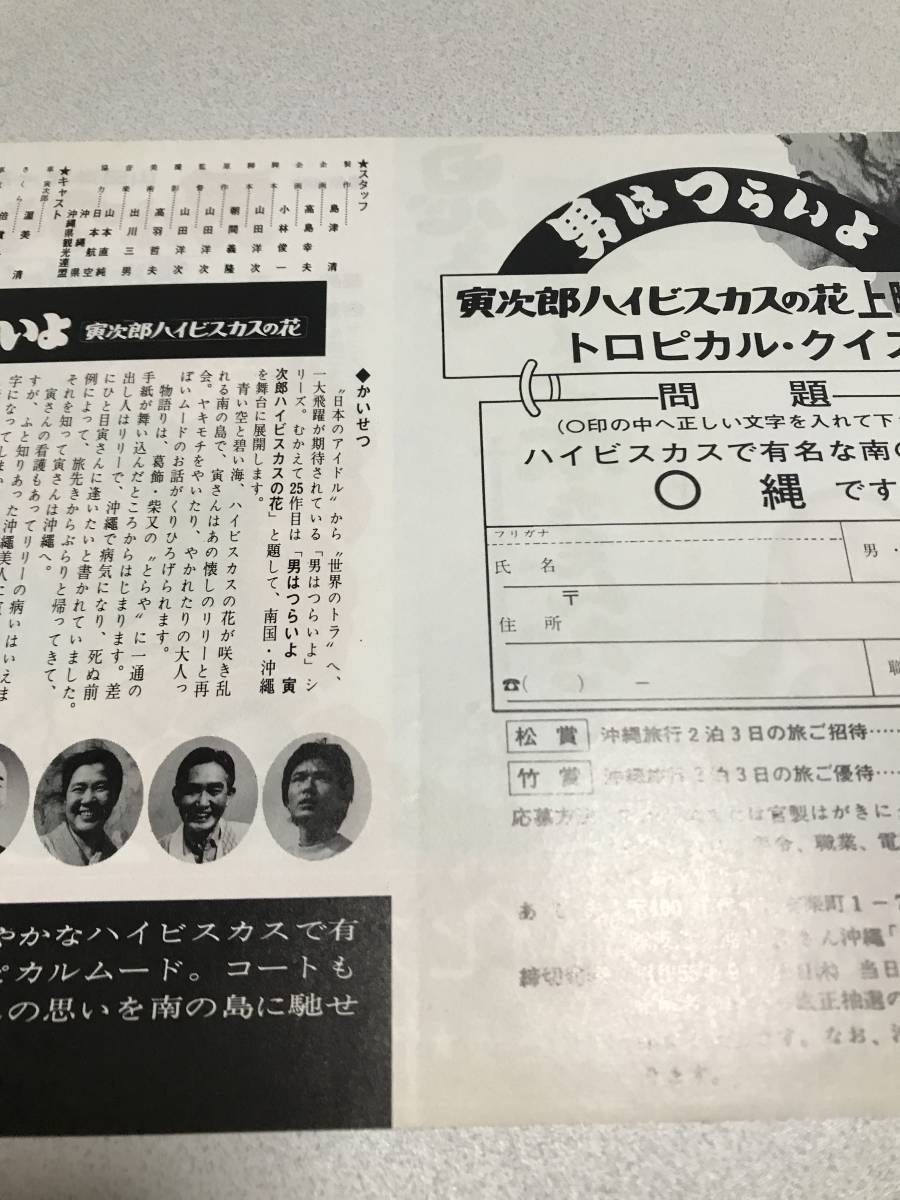 ★スタッフ
製作……島津 清
企画……高島幸夫
小林俊一
脚本……山田洋次
朝間義隆
原作……山田洋次
監督……山田洋次
撮影……高羽哲夫
美術……出川三男
音楽……山本直純
協力……日本航空
沖縄県
沖縄県観光連盟
★キャスト
車寅次郎……渥美 清
さくら……倍賞
いよ 寅次郎ハイビスカスの花
◆かいせつ
“日本のアイドル”から“世界のトラ”へ、
一大飛躍が期待されている「男はつらいよ」シ
リーズ。むかえて25作目は「男はつらいよ 寅
次郎ハイビスカスの花」と題して、南国・沖縄
を舞台に展開します。
青い空と碧い海、ハイビスカスの花が咲き乱
れる南の島で、寅さんはあの懐しのリリーと再
会。ヤキモチをやいたり、やかれたりの大人っ
ぽいムードのお話がくりひろげられます。
物語りは、葛飾・柴又の“とらや”に一通の
手紙が舞い込んだところからはじまります。差
出し人はリリーで、沖縄で病気になり、死ぬ前
にひと目寅さんに逢いたいと書かれていました。
例によって、旅先きからぶらりと帰ってきて、
それを知って寅さんは沖縄へ。
寅さんの看護もあってリリーの病いはいえま
すが、ふと知りあった沖縄美人に
字になってしま
やかなハイビスカスで有
ピカルムード。コートも
の思いを南の島に馳せ
男はつらいよ
寅次郎ハイビスカスの花上
トロピカル・クイズ
問題
(○印の中へ正しい文字を入れて下
ハイビスカスで有名な南の
○縄です
フリガナ
氏名
男・
〒
住所
☎( ) －
職
松賞 沖縄旅行2泊3日の旅ご招待……
竹賞 沖縄旅行2泊3日の旅ご優待……
応募方 には官製はがきに
職業、電
あ 町1-7
さん沖縄「
締切 当日
正抽選の
す。なお、